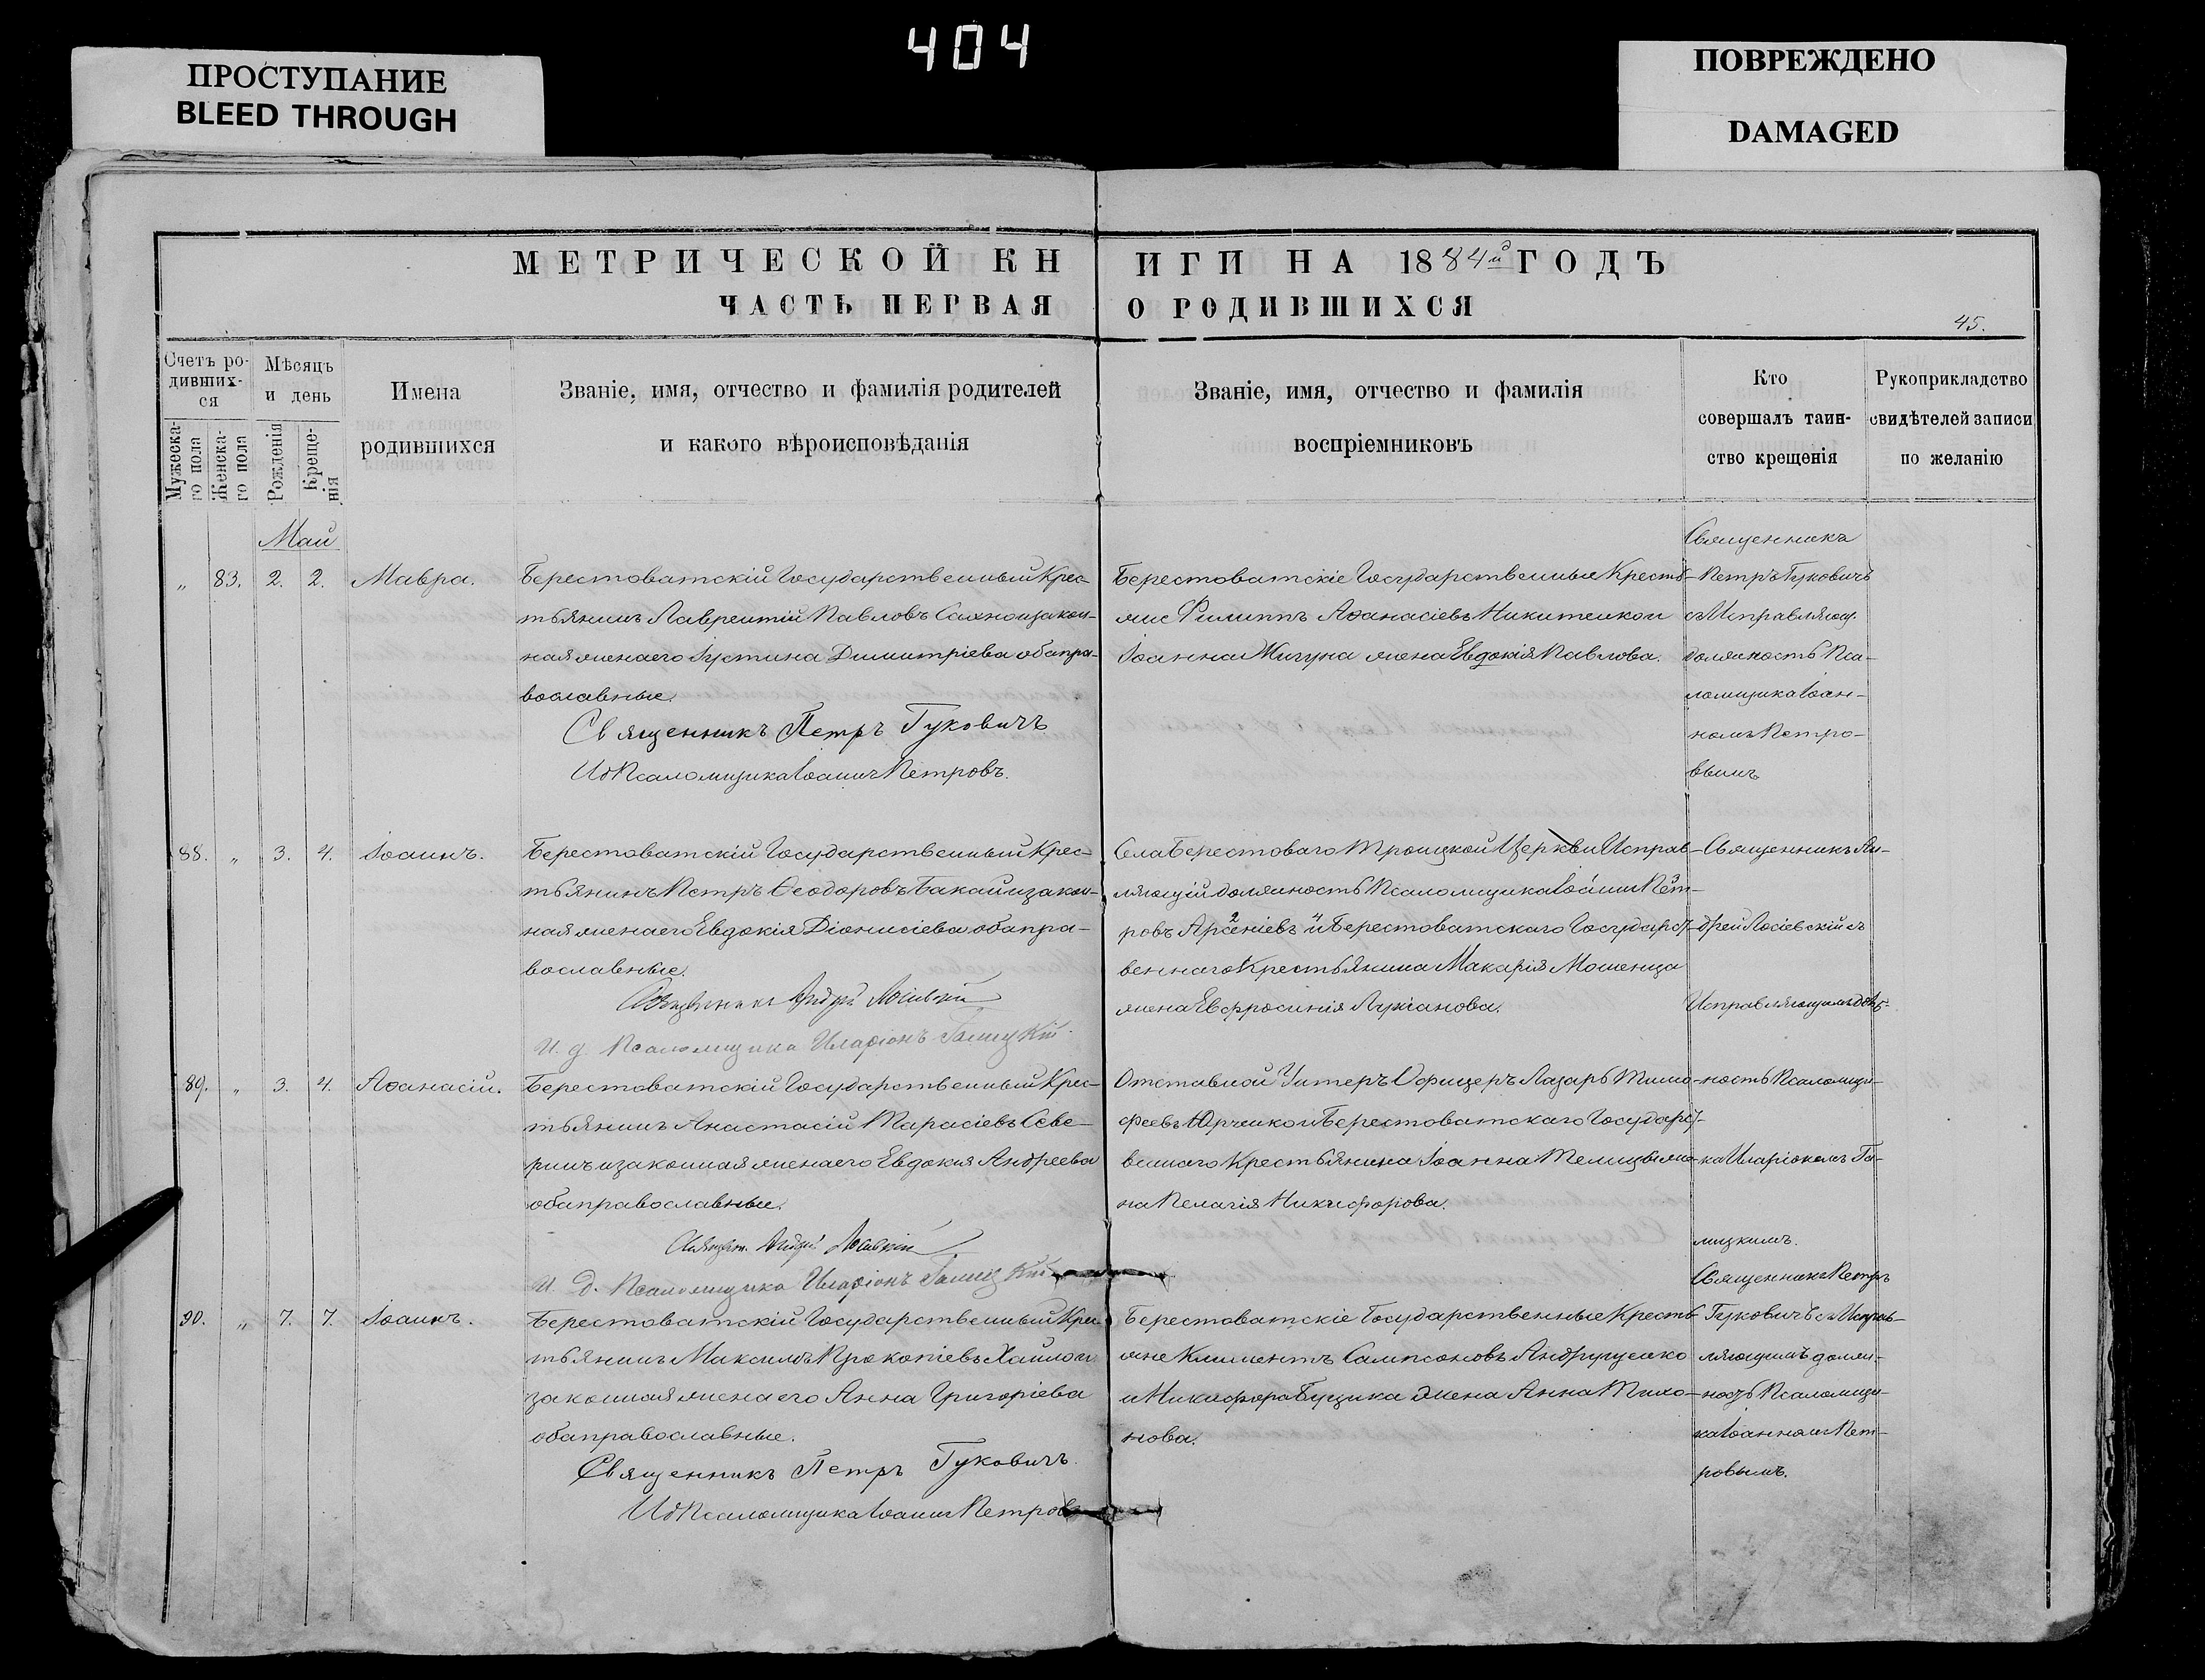 404
ПРОСТУПАНИЕ
BLEED THROUGH
ПОВРЕЖДЕНО
DAMAGED
МЕТРИЧЕСКОЙ КНИГИ НА 1884й ГОДЪ
ЧАСТЬ ПЕРВАЯ О РОДИВШИХСЯ
45.
Счетъ ро-
дивших-
ся
Мужеска-
го пола
Женска-
го пола
Мѣсяцъ
и день
Рожденія
Креще-
нія
Имена
родившихся
Званіе, имя, отчество и фамилія родителей
и какого вѣроисповѣданія
Званіе, имя, отчество и фамилія
воспріемниковъ
Кто
совершалъ таин-
ство крещенія
Рукоприкладство
свидѣтелей записи
по желанію
Май
„ 83. 2. 2. Мавра.
Берестоватскій Государственный Крес-
тьянинъ Лаврентій Павловъ Сахно и закон-
ная жена его Іустина Димитріева оба пра-
вославные.
Священникъ Петръ Гуковичъ
Ид Псаломщика Іоаннъ Петровъ.
Берестоватскіе Государственные Кресть-
яне Филиппъ Аѳанасіевъ Никитенко и
Іоанна Жигуна жена Евдокія Павлова.
Священникъ
Петръ Гуковичъ
съ Исправляющ.
должность Пса-
ломщика Іоан-
номъ Петро-
вымъ
88. „ 3. 4. Іоаннъ.
Берестоватскій Государственный Крес-
тьянинъ Петръ Ѳеодоровъ Бакай и закон-
ная жена его Евдокія Діонисіева оба пра-
вославные.
Священникъ Андрей Лосіевскій
И. д. Псаломщика Иларіонъ Галицкій
Села Берестоваго Троицкой Церкви Исправ-
ляющій должность Псаломщика Іоаннъ Пет-
ровъ Арсеніевъ и Берестоватскаго Государст-
веннаго Крестьянина Макарія Мошенца
жена Евфросинія Лукіанова.
Священникъ Ан-
дрей Лосіевскій съ
Исправляющимъ долж-
ность Псаломщи-
ка Иларіономъ Га-
лицкимъ.
89. „ 3. 4. Аѳанасій.
Берестоватскій Государственный Крес-
тьянинъ Анастасій Тарасіевъ Севе-
ринъ и законная жена его Евдокія Андреева
оба православные.
Священ. Андрей Лосіевскій
И. д. Псаломщика Иларіонъ Галицкій
Отставной Унтеръ Офицеръ Лазарь Тимо-
феевъ Юрченко и Берестоватскаго Государст-
веннаго Крестьянина Іоанна Телицы же-
на Пелагія Никифорова.
90. „ 7. 7. Іоаннъ.
Берестоватскій Государственный Крес-
тьянинъ Максимъ Прокопіевъ Хайло и
законная жена его Анна Григоріева
оба православные.
Священникъ Петръ Гуковичъ
Ид Псаломщика Іоаннъ Петровъ
Берестоватскіе Государственные Кресть-
яне Климентъ Сампсоновъ Андрущенко
и Никифора Буцика жена Анна Тихо-
нова.
Священникъ Петръ
Гуковичъ съ Исправ-
ляющимъ долж-
ность Псаломщи-
ка Іоанномъ Пет-
ровымъ.